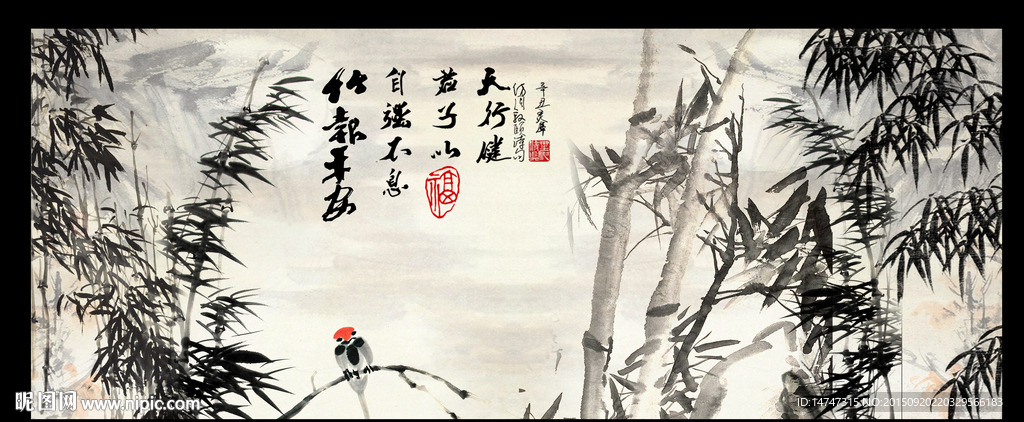 辛丑
天行健
君子以
自強不息
竹報平安
福
昵图网 www.nipic.com
ID:14747315 NO:20150920220329566183